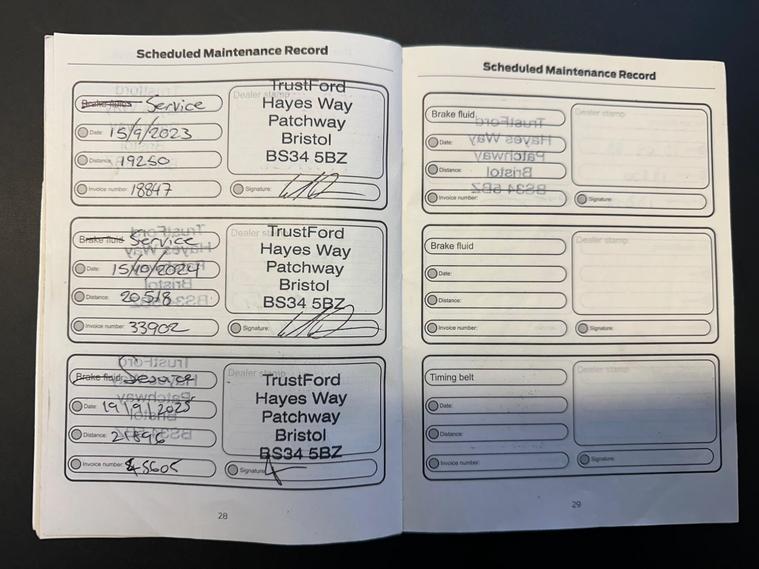 Scheduled Maintenance Record
Brake fluid Service
Date: 15/9/2023
Distance: 19250
Invoice number: 18847
Dealer stamp
TrustFord
Hayes Way
Patchway
Bristol
BS34 5BZ
Signature:
Brake fluid Service
Date: 15/10/2024
Distance: 20518
Invoice number: 33902
Dealer stamp
TrustFord
Hayes Way
Patchway
Bristol
BS34 5BZ
Signature:
Brake fluid Service
Date: 19/9/2025
Distance: 21896
Invoice number: 45605
Dealer stamp
TrustFord
Hayes Way
Patchway
Bristol
BS34 5BZ
Signature:
28
Scheduled Maintenance Record
Brake fluid
Date:
Distance:
Invoice number:
Dealer stamp
Signature:
Brake fluid
Date:
Distance:
Invoice number:
Dealer stamp
Signature:
Timing belt
Date:
Distance:
Invoice number:
Dealer stamp
Signature:
29